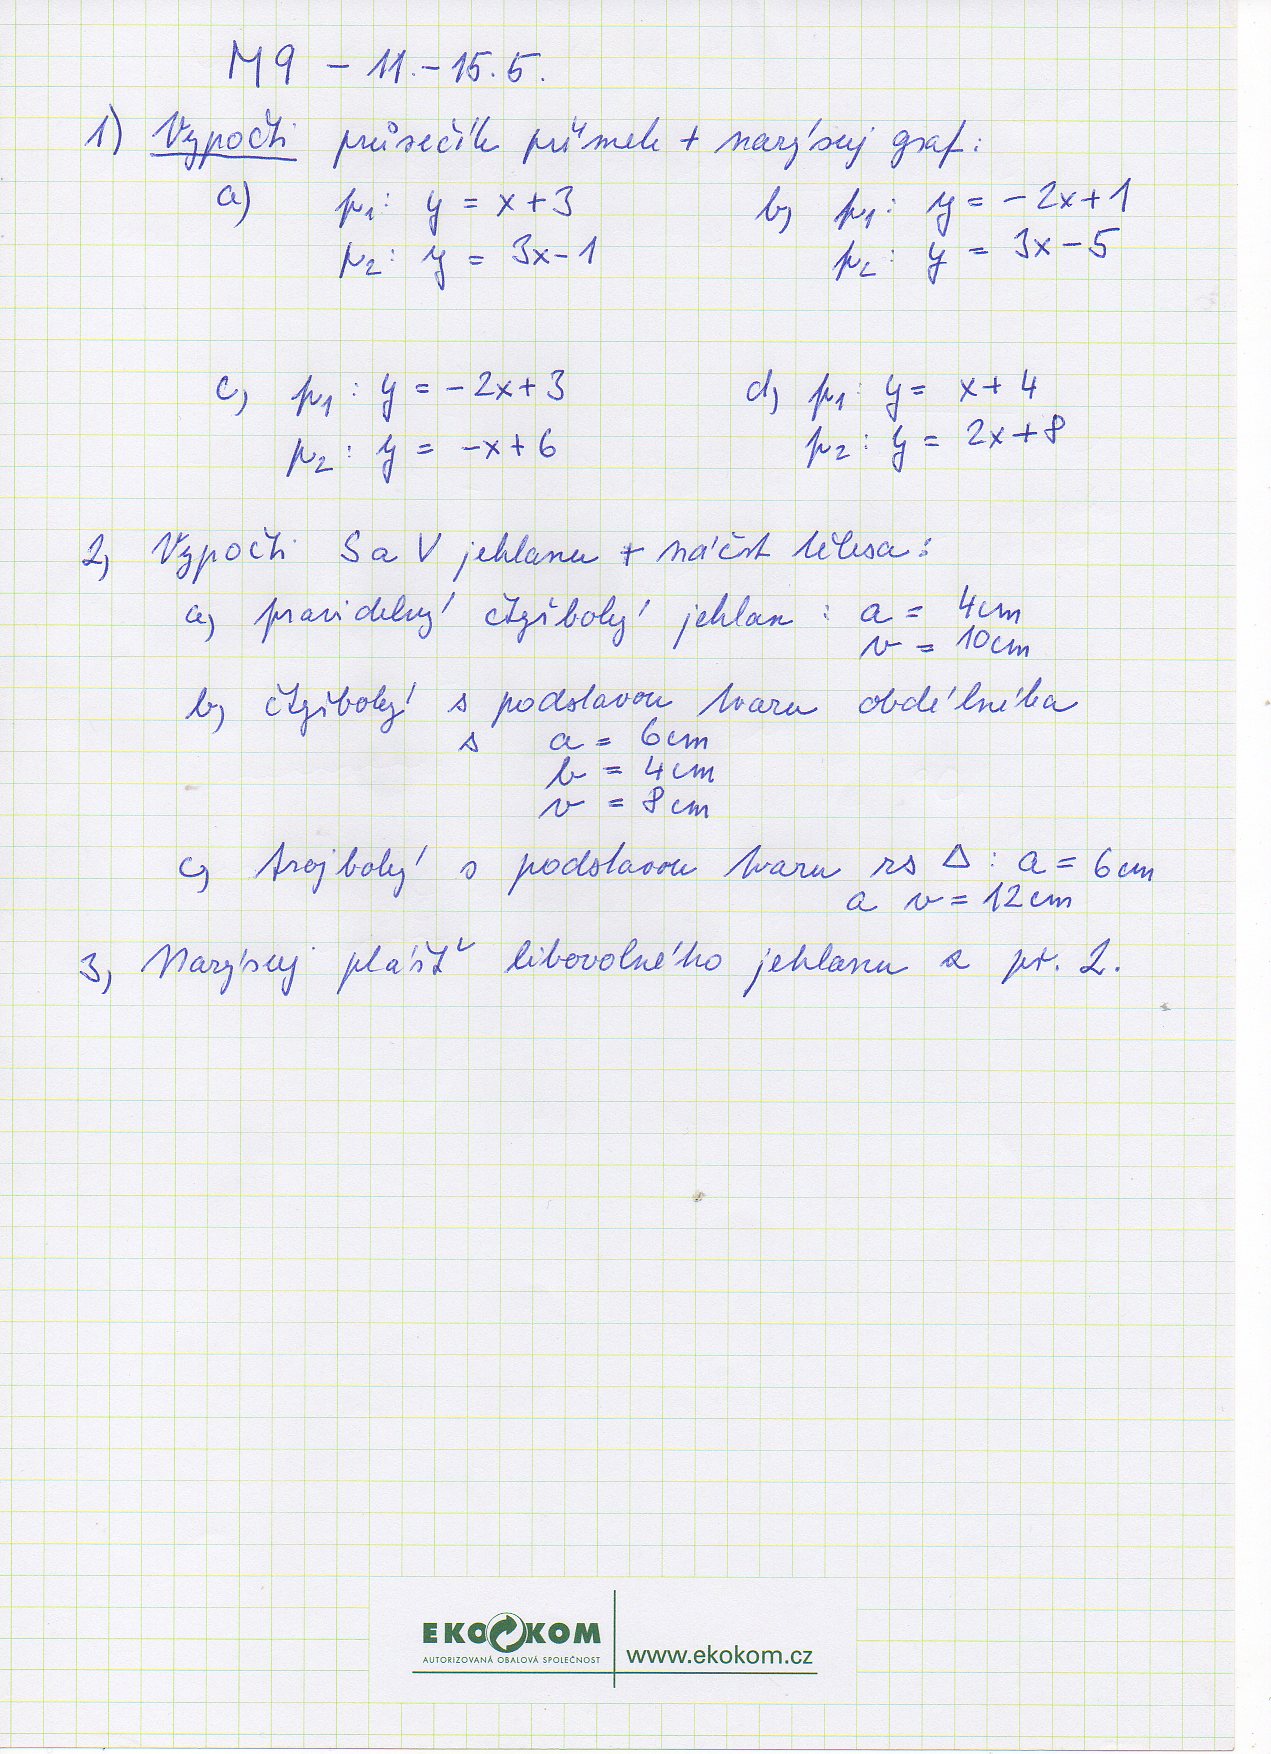 M9 - 11. - 15. 5.
1) Vypočti průsečík přímek + narýsuj graf:
a) p1: y = x + 3 b) p1: y = - 2x + 1
p2: y = 3x - 1 p2: y = 3x - 5
c) p1: y = - 2x + 3 d) p1: y = x + 4
p2: y = -x + 6 p2: y = 2x + 8
2) Vypočti S a V jehlanu + náčrt tělesa:
a) pravidelný čtyřboký jehlan : a = 4cm
v = 10cm
b) čtyřboký s podstavou tvaru obdélníka
s a = 6cm
b = 4cm
v = 8cm
c) trojboký s podstavou tvaru rs Δ : a = 6cm
a v = 12cm
3) Narýsuj plášť libovolného jehlanu z př. 2.
EKOKOM
AUTORIZOVANÁ OBALOVÁ SPOLEČNOST
www.ekokom.cz